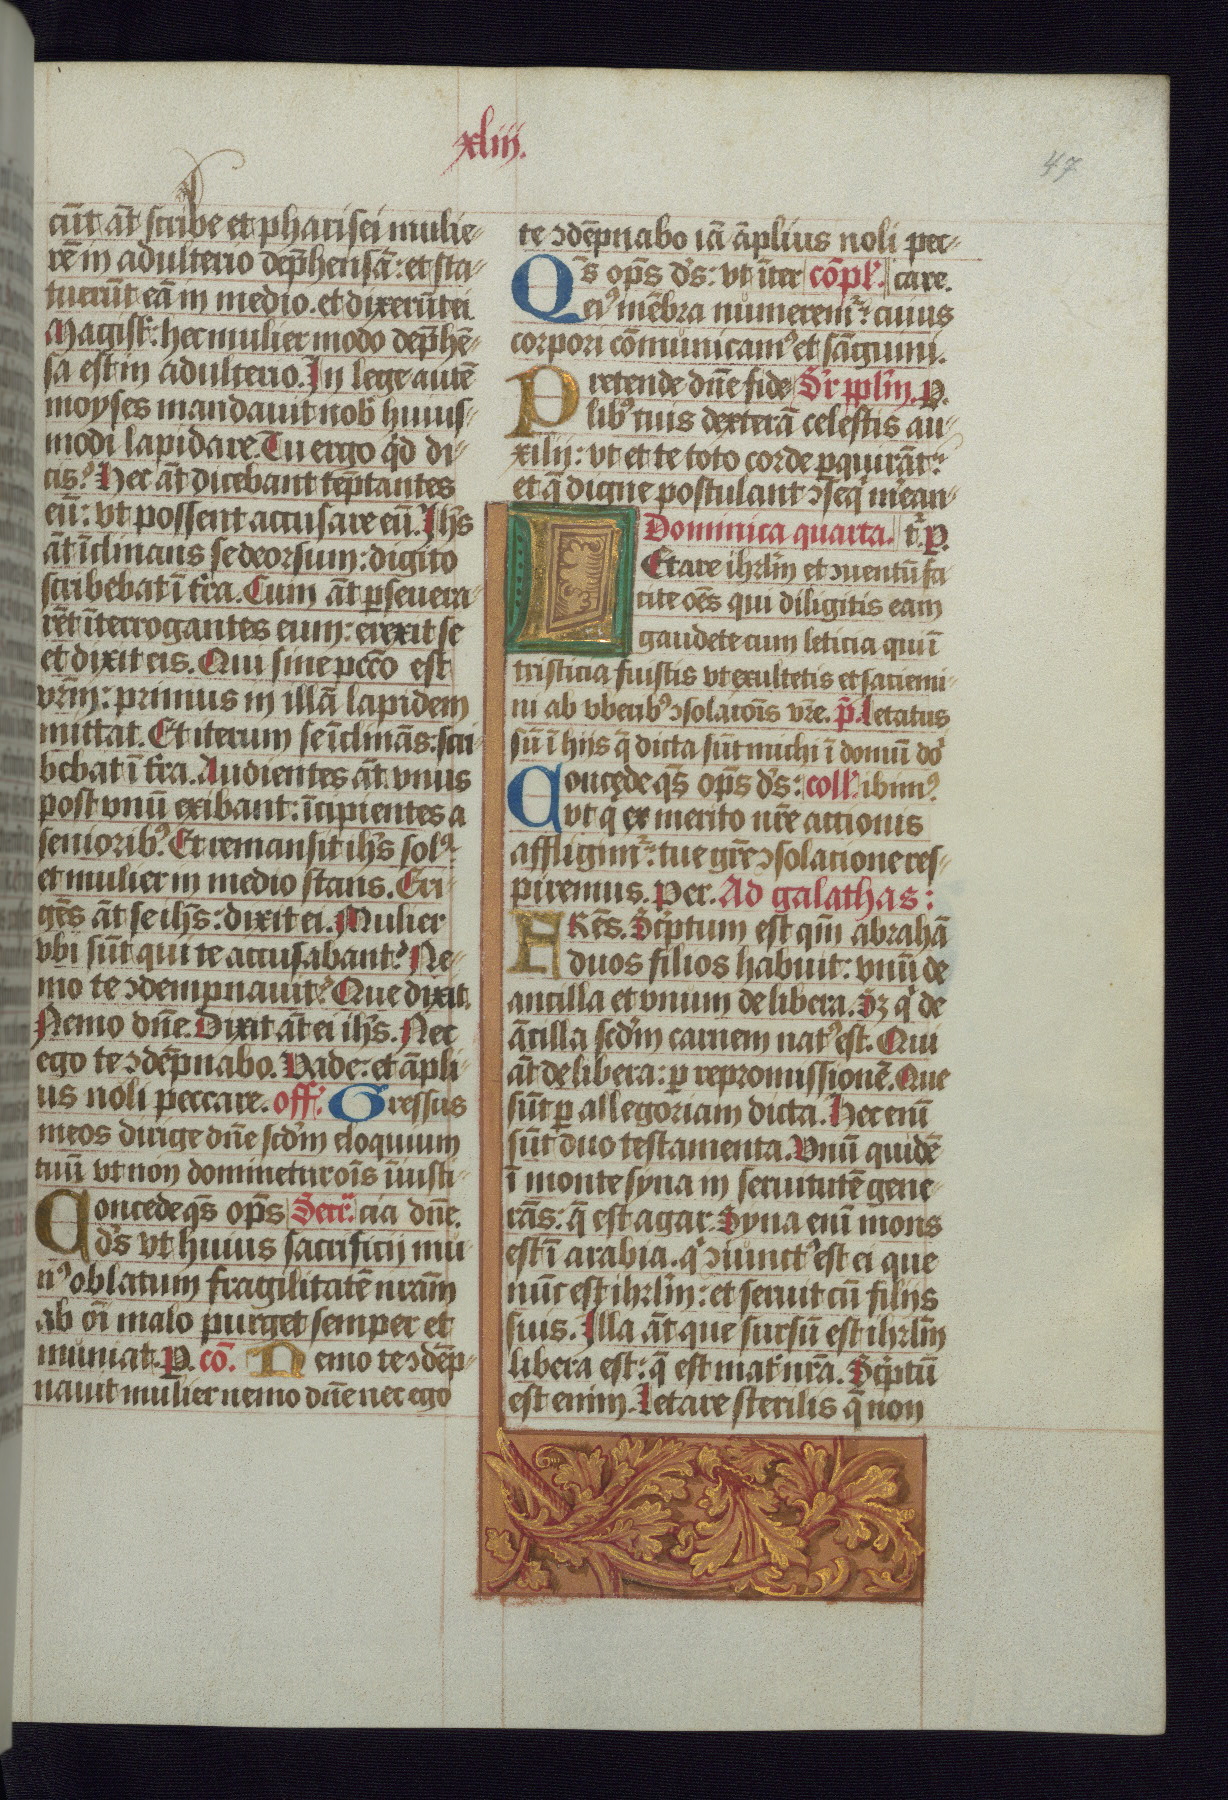 xliii.
47
cūt āt scribe et pharisei mulie-
rē in adulterio dep̄hensā: et sta-
tuerūt eā in medio. et dixerūt ei.
Magist̄: hec mulier modo dep̄hē-
sa est in adulterio. In lege autē
moyses mandavit nob̄ huius-
modi lapidare. Tu ergo q̇d di-
cis? Hec āt dicebant tēptantes
eū: vt possent accusare eū. Ihs̄
āt īclinans se deorsum: digito
scribebat ī t̄ra. Cum āt ꝑseuera-
rēt īterrogantes eum: erexit se
et dixit eis. Qui sine pcc̄o est
vr̄m: primus in illā lapidem
mittat. Et iterum se īclinās: scri-
bebat ī t̄ra. Audientes āt vnus
post vnū exibant: īcipientes a
seniorib⁹. Et remansit ihs̄ sol⁹:
et mulier in medio stans. Eri-
gēs āt se ihs̄: dixit ei. Mulier
vbi sūt qui te accusabant? Ne-
mo te ↄdempnauit? Que dixit.
Nemo dn̄e. Dixit āt ei ihs̄. Nec
ego te ↄdēpnabo. Vade: et āpli-
us noli peccare. off̄. Gressus
meos dirige dn̄e scd̄m eloquium
tuū vt non dominetur oīs īiusti-
Concede qs̄ op̄s Secr̄. cia dn̄e.
ds̄ vt huius sacrificij mu-
n⁹ oblatum fragilitatē nrām
ab oī malo purget semper et
muniat. P. cō. Nemo te ↄdēp-
nauit mulier nemo dn̄e nec ego
te ↄdēpnabo iā āplius noli pec-
Qs̄ op̄s ds̄: vt īter cōpl̄. care.
ei⁹ mēbra numerem̄: cuius
corpori cōmunicam⁹ et sāguini.
Pretende dn̄e fide Sr̄ pp̄lm̄. P.
lib⁹ tuis dexterā celestis au-
xilij: vt et te toto corde ꝑquirāt:
et q̄ digne postulant ↄseq̄ mēan-
Dominica quarta. t̄. P.
LEtare ihrlm̄ et ↄuentū fa-
cite oēs qui diligitis eam
gaudete cum leticia qui ī
tristicia fuistis vt exultetis et saciemi-
ni ab vberib⁹ ↄsolacōis vr̄e. p̄. Letatus
sū ī hijs q̄ dicta sūt michi ī domū do͛
Concede qs̄ op̄s ds̄: coll̄. ibim⁹.
vt q ex merito nr̄e actionis
affligim̄: tue gr̄e ↄsolacione res-
piremus. Per. Ad galathas:
FRēs. Sc̄ptum est qm̄ abrahā
duos filios habuit: vnū de
ancilla et vnum de libera. Sꝫ q̇ de
ācilla scd̄m carnem nat⁹ est. Qui
āt de libera: ꝑ repromissionē. Que
sūt ꝑ allegoriam dicta. Hec enī
sūt duo testamenta. Vnū quidē
ī monte syna in seruitutē gene-
rās: q̄ est agar. Syna enī mons
est ī arabia. q̇ ↄiunct⁹ est ei que
nūc est ihrlm̄: et seruit cū filijs
suis. Illa āt que sursū est ihrlm̄
libera est: q̄ est mat̄ nr̄a. Sc̄ptū
est enim. Letare sterilis q̄ non